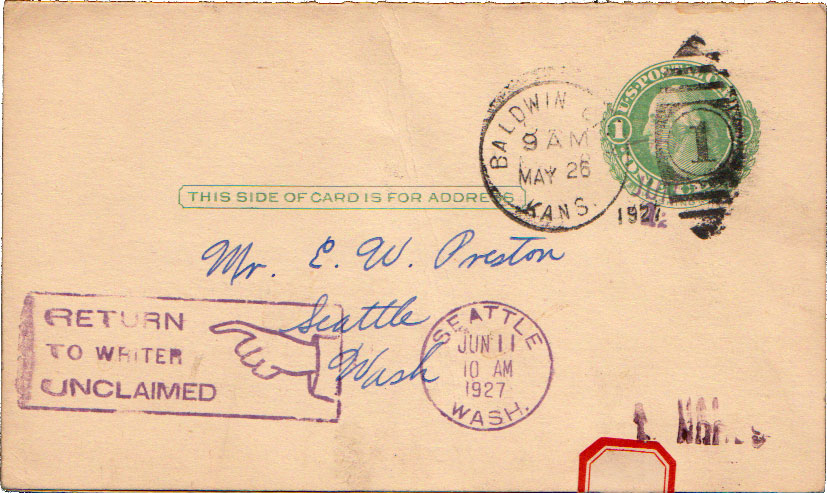 U.S. POSTAL
1
1
BALDWIN
9 AM
MAY 26
KANS.
1927
THIS SIDE OF CARD IS FOR ADDRESS
Mr. E. W. Preston
Seattle
Wash
RETURN
TO WRITER
UNCLAIMED
SEATTLE
JUN 11
10 AM
1927
WASH.